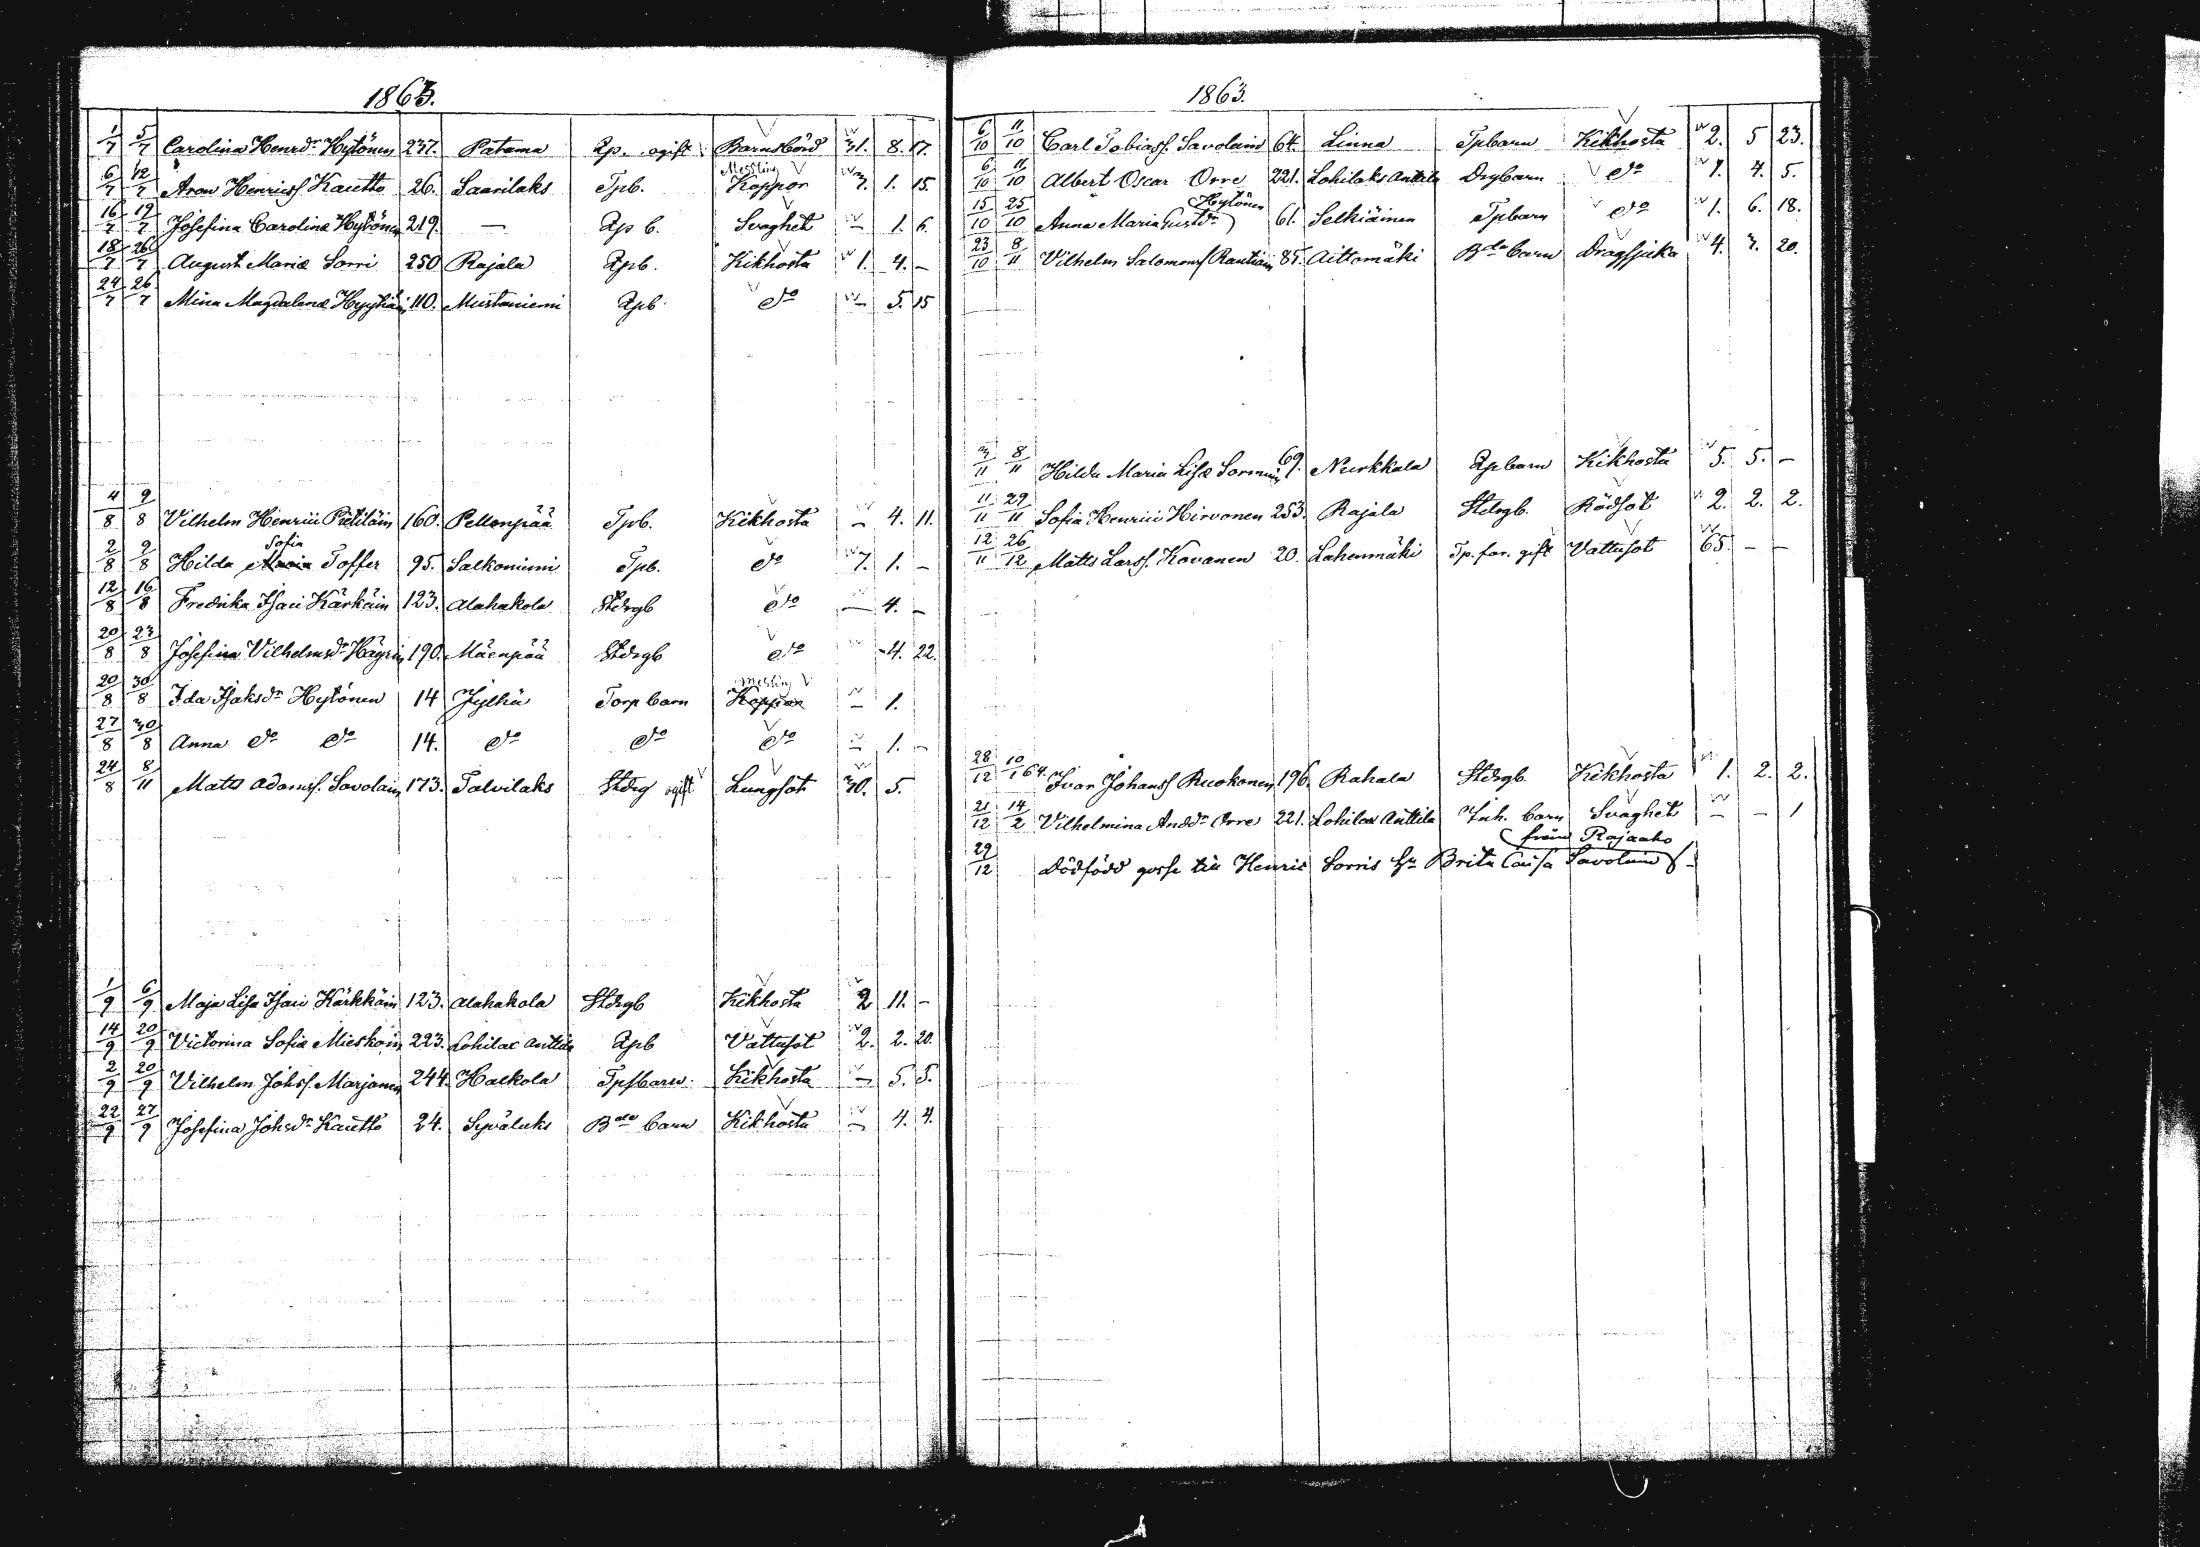 1863.
1/7 5/7 Carolina Henrdr Hytönen 237. Patama Ap. ogift Barnsbörd 31. 8. 17.
Messling
6/7 12/7 Aron Henricss. Kautto 26. Saarilaks Tpb. Koppor 3. 1. 15.
16/7 19/7 Josefina Carolina Hytönen 219. — Ap b. Svaghet — 1. 6.
18/7 26/7 August Maria Sorri 250 Rajala Apb. Kikhosta 1. 4. —
24/7 26/7 Mina Magdalena Hyytiäin 110. Mustaniemi Apb. do — 5. 15
4/8 9/8 Vilhelm Henrici Pietiläin 160. Pellonpää Tpb. Kikhosta — 4. 11.
Sofia
2/8 9/8 Hilda Maria Toffer 95. Salkoniemi Tpb. do 7. 1. —
12/8 16/8 Fredrika Isaci Kärkäin 123. Alahakola Stdrgb do — 4. —
20/8 23/8 Josefina Vilhelmsdr Häyrin 190. Mäenpää Stdrgb do - 4. 22.
Messling
20/8 30/8 Ida Isaksdr Hytönen 14 Jylhä Torp barn Koppor — 1.
27/8 30/8 Anna do do 14. do do do — 1. —
24/8 8/11 Matts Adamss. Savolain 173. Talvilaks Stdrg ogift Lungsot 30. 5.
1/9 6/9 Maja Lisa Isaci Kärkkäin 123. Alahakola Stdrgb Kikhosta 2 11. —
14/9 20/9 Victorina Sofia Mieskoin 223. Lohilax Anttila Apb Vattusot 2. 2. 20.
2/9 20/9 Vilhelm Johss. Marjanen 244. Halkola Tpsbarn. Kikhosta — 5. 5.
22/9 27/9 Josefina Johsdr Kautto 24. Syväluks Bde barn Kikhosta — 4. 4.
1863.
6/10 11/10 Carl Tobiass. Savolain 64. Linna Tpbarn Kikhosta 2. 5 23.
6/10 11/10 Albert Oscar Orre 221. Lohilaks Anttila Drgbarn do 1. 4. 5.
Hytönen
15/10 25/10 Anna Maria Gustdr 61. Selkiäinen Tpbarn do 1. 6. 18.
23/10 8/11 Vilhelm Salomonss Rautiain 85. Aittomäki Bde barn Dragsjuka 4. 7. 20.
3/11 8/11 Hilda Maria Lisa Sormuin 69. Nurkkala Apbarn Kikhosta 5. 5. —
11/11 29/11 Sofia Henrici Hirvonen 253. Rajala Stdrgb. Rödsot 2. 2. 2.
12/11 26/12 Matts Larss. Kovanen 20. Lahenmäki Tp. far. gift Vattusot 65. — —
28/12 10/1 64. Ivar Johanss Ruokonen 196. Rahala Stdrgb. Kikhosta 1. 2. 2.
21/12 14/2 Vilhelmina Anddr Orre 221. Lohilax Anttila Inh. barn Svaghet — — 1
från Rajaaho
29/12 Dödfödd gosse till Henric Sorris hu Brita Caisa Savolain